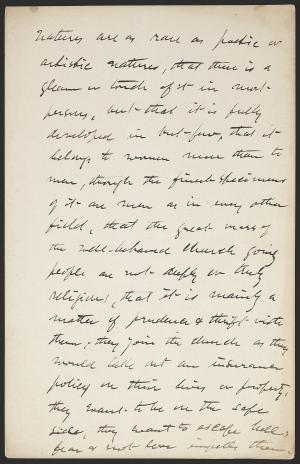 natures are as rare as poetic or
artistic natures, that there is a
gleam or touch of it in most
persons, but that it is fully
developed in but few, that it
belongs to women more than to
men, though the finest specimens
of it are men as in every other
field, that the great mass of
the well-behaved church going
people are not deeply or truly
religious, that it is mainly a
matter of prudence & thrift with
them; they join the church as they
would take out an insurance
policy on their lives or property,
they want to be on the safe
side, they want to escape hell;
fear & not love impells them.